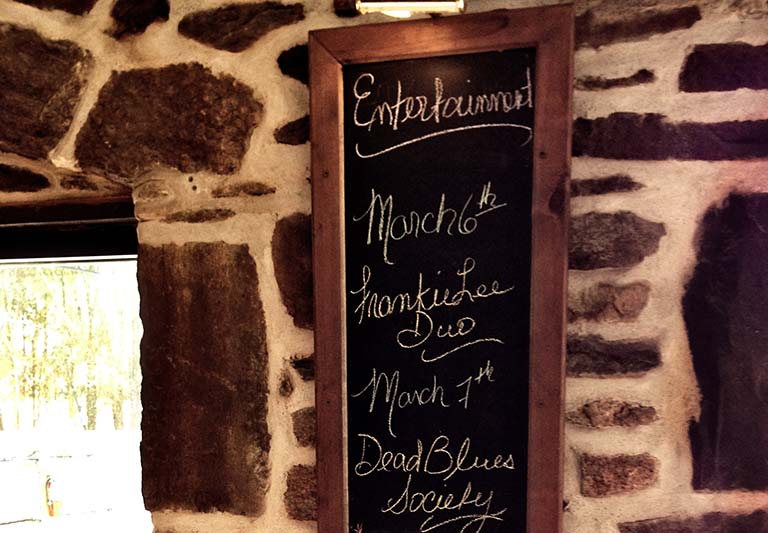 Entertainment
March 6th
Frankie Lee
Duo
March 7th
Dead Blues
Society